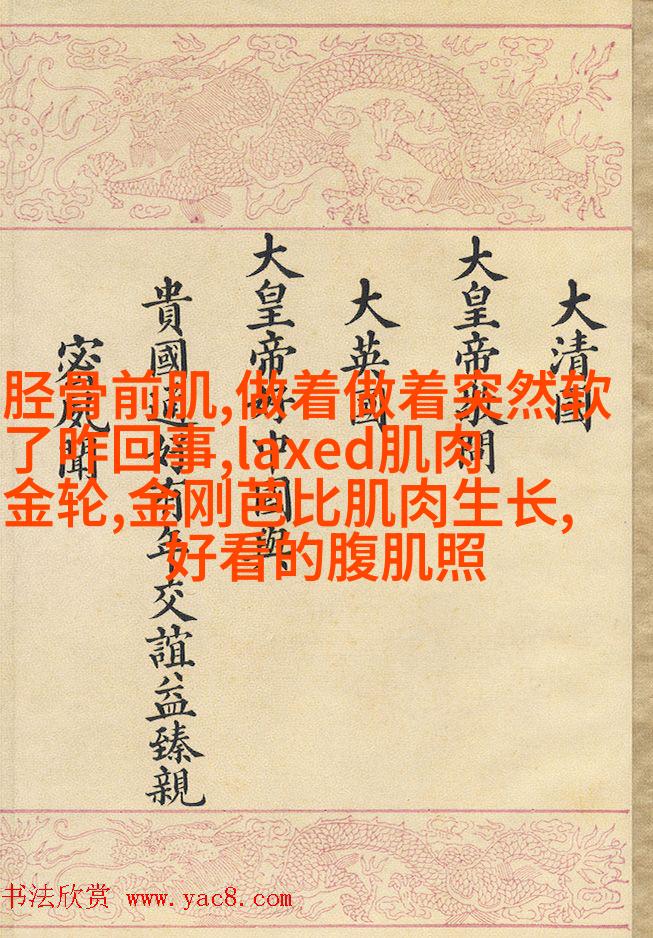 大清國
大皇帝敬問
大英國
大皇帝好中國與
貴國通好有年交誼益臻親
密夙聞
胫骨前肌,做着做着突然软
了咋回事,laxed肌肉
金轮,金刚芭比肌肉生长,
好看的腹肌照
书法欣赏 www.yac8.com